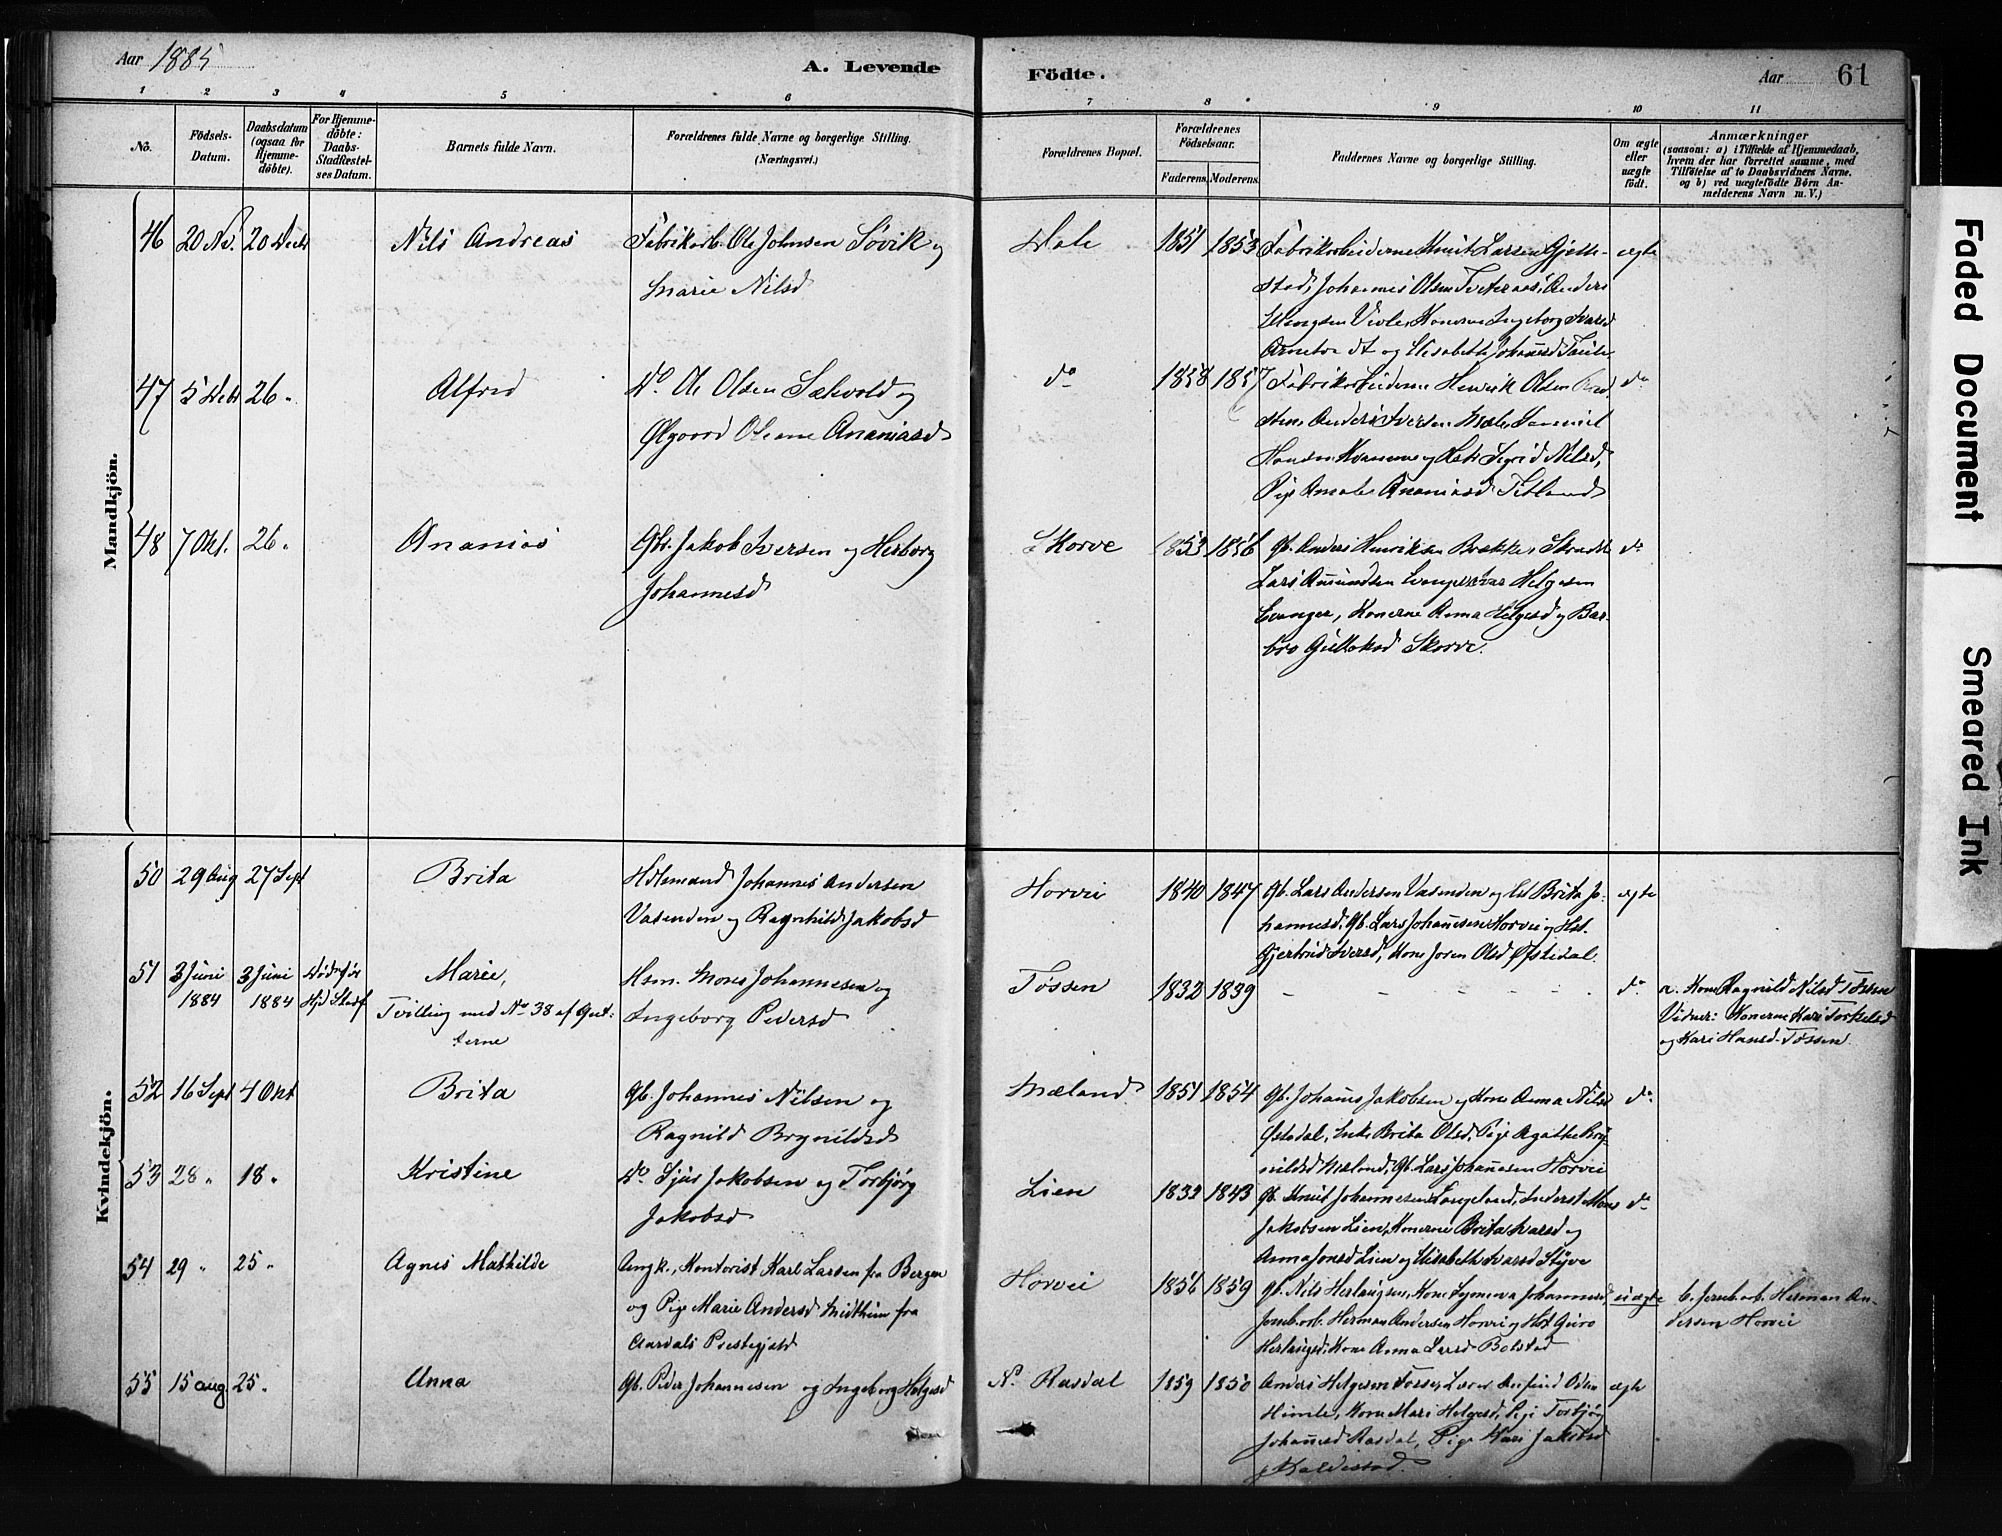 Aar 1885
A. Levende
Födte.
Aar
61
1 2 3 4 5 6 7 8 9 10 11
No.
Födsels-
Datum.
Daabsdatum
(ogsaa for
Hjemme-
döbte).
For Hjemme-
döbte:
Daabs-
Stadfæstel-
ses Datum.
Barnets fulde Navn.
Forældrenes fulde Navne og borgerlige Stilling.
(Næringsvei.)
Forældrenes Bopæl.
Forældrenes
Födselsaar.
Faderens.
Moderens.
Faddernes Navne og borgerlige Stilling.
Om ægte
eller
uægte
födt.
Anmærkninger
(saasom: a) i Tilfælde af Hjemmedaab,
hvem der har forrettet samme, med
Tilföielse af to Daabsvidners Navne.
og b) ved uægtefödte Börn An-
melderens Navn m. V.)
Mandkjön.
46 20 Nv. 20 Decb Nils Andreas Fabrikarb. Ole Johnsen Søvik og
Marie Nilsd
Dale 1851 1853 Fabrikarbeiderne Knut Larsen Gjette-
stad, Johannes Olsen Tveternes, Anders
Konerne Ingeborg Ivarsd
og Elisabeth Johansd
ægte
47 5 Decb 26 " Alfred Do. Ole Olsen Sætvold og
Ølgaard Oleane Ananiasd
do 1858 1857 Fabrikarbeiderne Henrik Olsen
Anders Iversen Mæle, Samuel
Hansen Kvamme og Hst. Sigrid Nilsd,
Pige Amalie Ananiasd Titland
do
48 7 Okt. 26 " Ananias Gbr. Jakob Iversen og Herborg
Johannesd
Skorve 1853 1856 Gb. Anders Henriksen Brække,
Lars Amundsen Evanger, Ivar Helgesen
Evanger, Konerne Anna Helgesd og Bar-
bro Gulleksd Skorve.
do
Kvindekjön.
50 29 Aug 27 Sept Brita Hdlsmand Johannes Andersen
Vasenden og Ragnhild Jakobsd
Horvei 1840 1847 Gb. Lars Andersen Vasenden og Brita Jo-
hannesd, Gb. Lars Johannesen Horvei og Hst.
Gjertrud Iversd, Kone Joren Olsd Øfstedal.
ægte
51 3 Juni 1884 3 Juni 1884 Marie,
Tvilling med No 38 af Gut-
terne
Hsm. Mons Johannesen og
Ingeborg Pedersd
Fossen 1832 1839 - - - - - do a. Kone Ragnild Nilsd Fossen
Vidner: Konerne Kari Torkelsd
og Kari Hansd Fossen.
52 16 Sept 4 Okt Brita Gb. Johannes Nilsen og
Ragnild Brynildsd
Mæland 1851 1854 Gb. Johannes Jakobsen og Kone Anna Nilsd
Øfstedal, Enke Brita Olsd, Pige Agathe Bry-
nildsd Mæland, Gb. Lars Johannesen Horvei
do
53 28 " 18 " Kristine Do Sjur Jakobsen og Torbjørg
Jakobsd
Lien 1832 1843 Gb. Knut Johannesen Langeland, Inderst Mons
Jakobsen Lien, Konerne Brita Ivarsd og
Anna Jonsd Lien og Elisabeth Ivarsd Styve
do
54 29 " 25 " Agnes Mathilde Ungk., Kontorist Karl Larsen fra Bergen
og Pige Marie Andersd Midthun fra
Aardals Prestegjeld
Horvei 1856 1859 Gb. Nils Herlaugsen, Kone Synneva Johannesd,
Jernb.arb. Herman Andersen Horvei og Hst Guro
Herlaugsd, Kone Anna Larsd Bolstad
uægte b. Jernb.arb. Herman An-
dersen Horvei
55 15 aug. 25 " Anna Gb. Peder Johannesen og Ingeborg Helgesd
N. Rasdal 1859 1850 Anders Helgesen Fosse, Lærer Anfind Odsen
Himle, Kone Mari Helgesd, Pige Torbjør
Johannesd Rasdal, Pige Kari Jakobsd
Kaldestad.
ægte
Faded Document
Smeared Ink